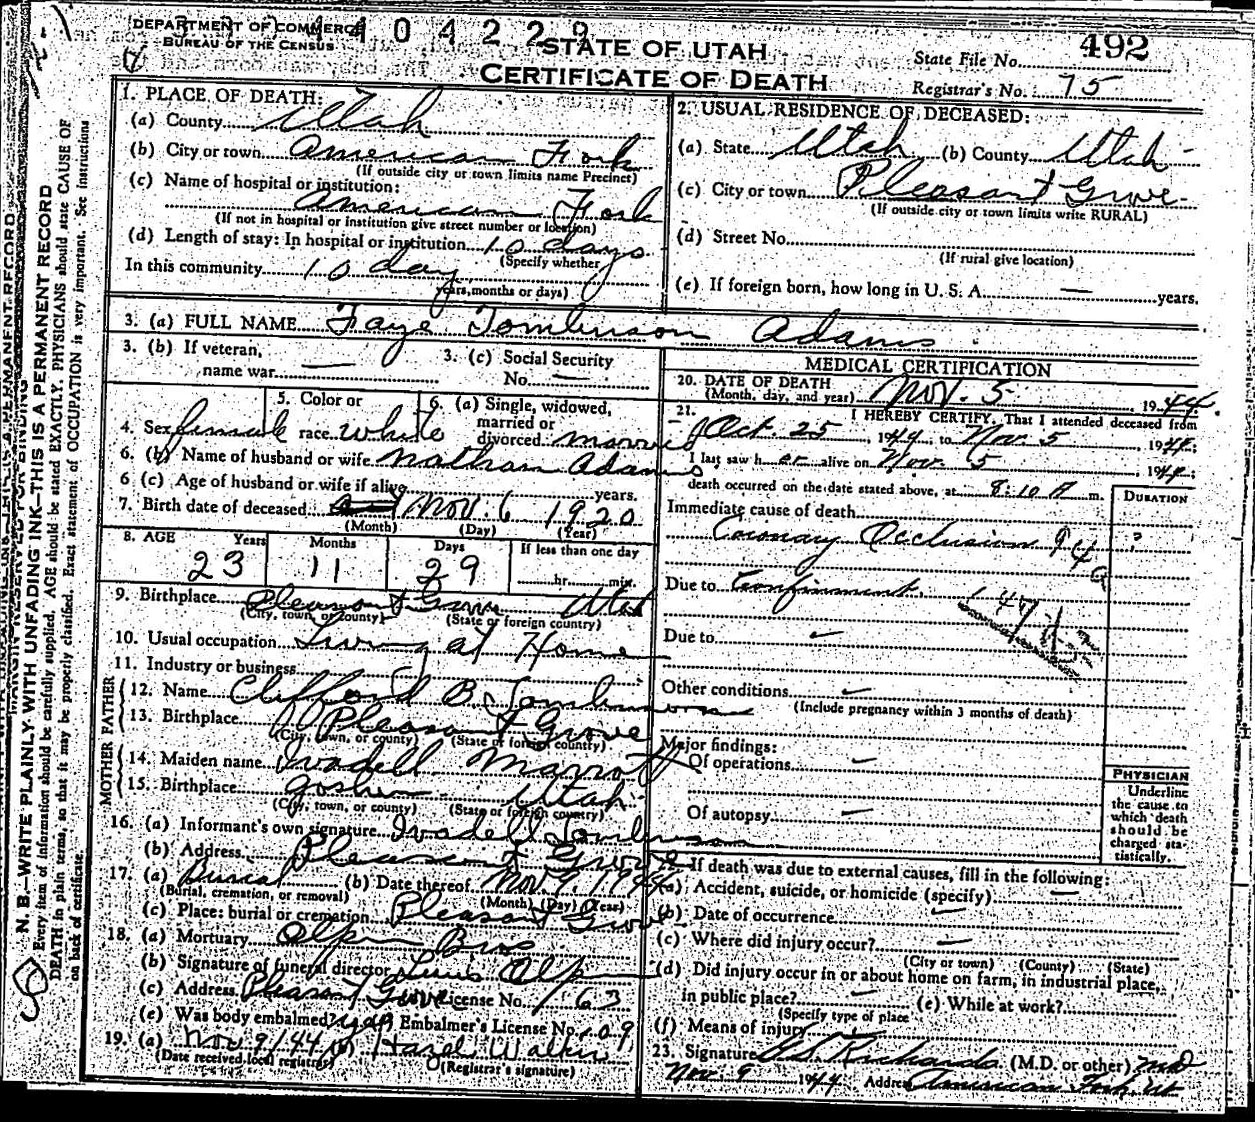 DEPARTMENT OF COMMERCE
BUREAU OF THE CENSUS
4 0 4 2 2 9
STATE OF UTAH
CERTIFICATE OF DEATH
State File No. 492
Registrar's No. 75
1. PLACE OF DEATH:
(a) County Utah
(b) City or town American Fork
(If outside city or town limits name Precinct)
(c) Name of hospital or institution:
American Fork
(If not in hospital or institution give street number or location)
(d) Length of stay: In hospital or institution 10 days
(Specify whether
In this community 10 day
years, months or days)
2. USUAL RESIDENCE OF DECEASED:
(a) State Utah (b) County Utah
(c) City or town Pleasant Grove
(If outside city or town limits write RURAL)
(d) Street No.
(If rural give location)
(e) If foreign born, how long in U. S. A. — years.
3. (a) FULL NAME Faye Tomlinson Adams
3. (b) If veteran, name war —
3. (c) Social Security No. —
4. Sex female
5. Color or race white
6. (a) Single, widowed, married or divorced married
6. (b) Name of husband or wife Nathan Adams
6 (c) Age of husband or wife if alive years.
7. Birth date of deceased Nov. 6 1920
(Month) (Day) (Year)
8. AGE Years Months Days If less than one day
23 11 29 hr. min.
9. Birthplace Pleasant Grove Utah
(City, town, or county) (State or foreign country)
10. Usual occupation Living at Home
11. Industry or business
FATHER
12. Name Clifford B. Tomlinson
13. Birthplace Pleasant Grove
(City, town, or county) (State or foreign country)
MOTHER
14. Maiden name Ivadell Marrott
15. Birthplace Goshen Utah
(City, town, or county) (State or foreign country)
16. (a) Informant's own signature Ivadell Tomlinson
(b) Address Pleasant Grove
17. (a) Burial (b) Date thereof Nov 7 1944
(Burial, cremation, or removal) (Month) (Day) (Year)
(c) Place: burial or cremation Pleasant Grove
18. (a) Mortuary Olpin Bros
(b) Signature of funeral director Olpin
(c) Address Pleasant Grove License No. 163
(e) Was body embalmed? yes Embalmer's License No. 109
19. (a) Nov 9/44 (b) Hazel Walker
(Date received local registrar) (Registrar's signature)
MEDICAL CERTIFICATION
20. DATE OF DEATH
(Month, day, and year) Nov. 5 1944.
21. I HEREBY CERTIFY, That I attended deceased from
Oct. 25, 1944 to Nov. 5, 1944;
I last saw her alive on Nov. 5 1944;
death occurred on the date stated above, at 8:10 A m.
DURATION
Immediate cause of death
Coronary Occlusion 94a ?
Due to Confinement
Due to
Other conditions
(Include pregnancy within 3 months of death)
Major findings:
Of operations —
Of autopsy —
PHYSICIAN
Underline
the cause to
which death
should be
charged sta-
tistically.
If death was due to external causes, fill in the following:
(a) Accident, suicide, or homicide (specify) —
(b) Date of occurrence
(c) Where did injury occur? —
(City or town) (County) (State)
(d) Did injury occur in or about home on farm, in industrial place,
in public place? (e) While at work?
(Specify type of place
(f) Means of injury
23. Signature Richards (M.D. or other) MD
Nov. 9 1944 Address American Fork, Ut
N. B.—WRITE PLAINLY WITH UNFADING INK—THIS IS A PERMANENT RECORD
Every item of information should be carefully supplied. AGE should be stated EXACTLY. PHYSICIANS should state CAUSE OF
DEATH in plain terms, so that it may be properly classified. Exact statement of OCCUPATION is very important. See instructions
on back of certificate.